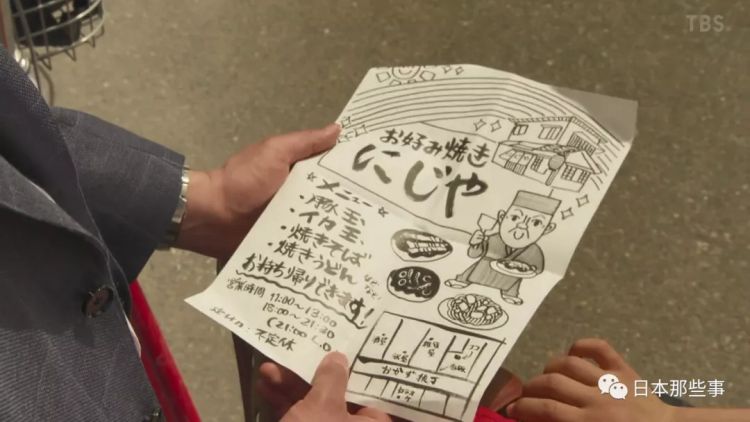 TBS
お好み焼き
にじや
☆メニュー☆
・豚玉
・イカ玉
・焼きそば
・焼きうどん などなど
お持ち帰りできます!
営業時間 11:00~13:00
18:00~21:30
(21:00 L.O
定休日:不定休
おかず横丁
日本那些事